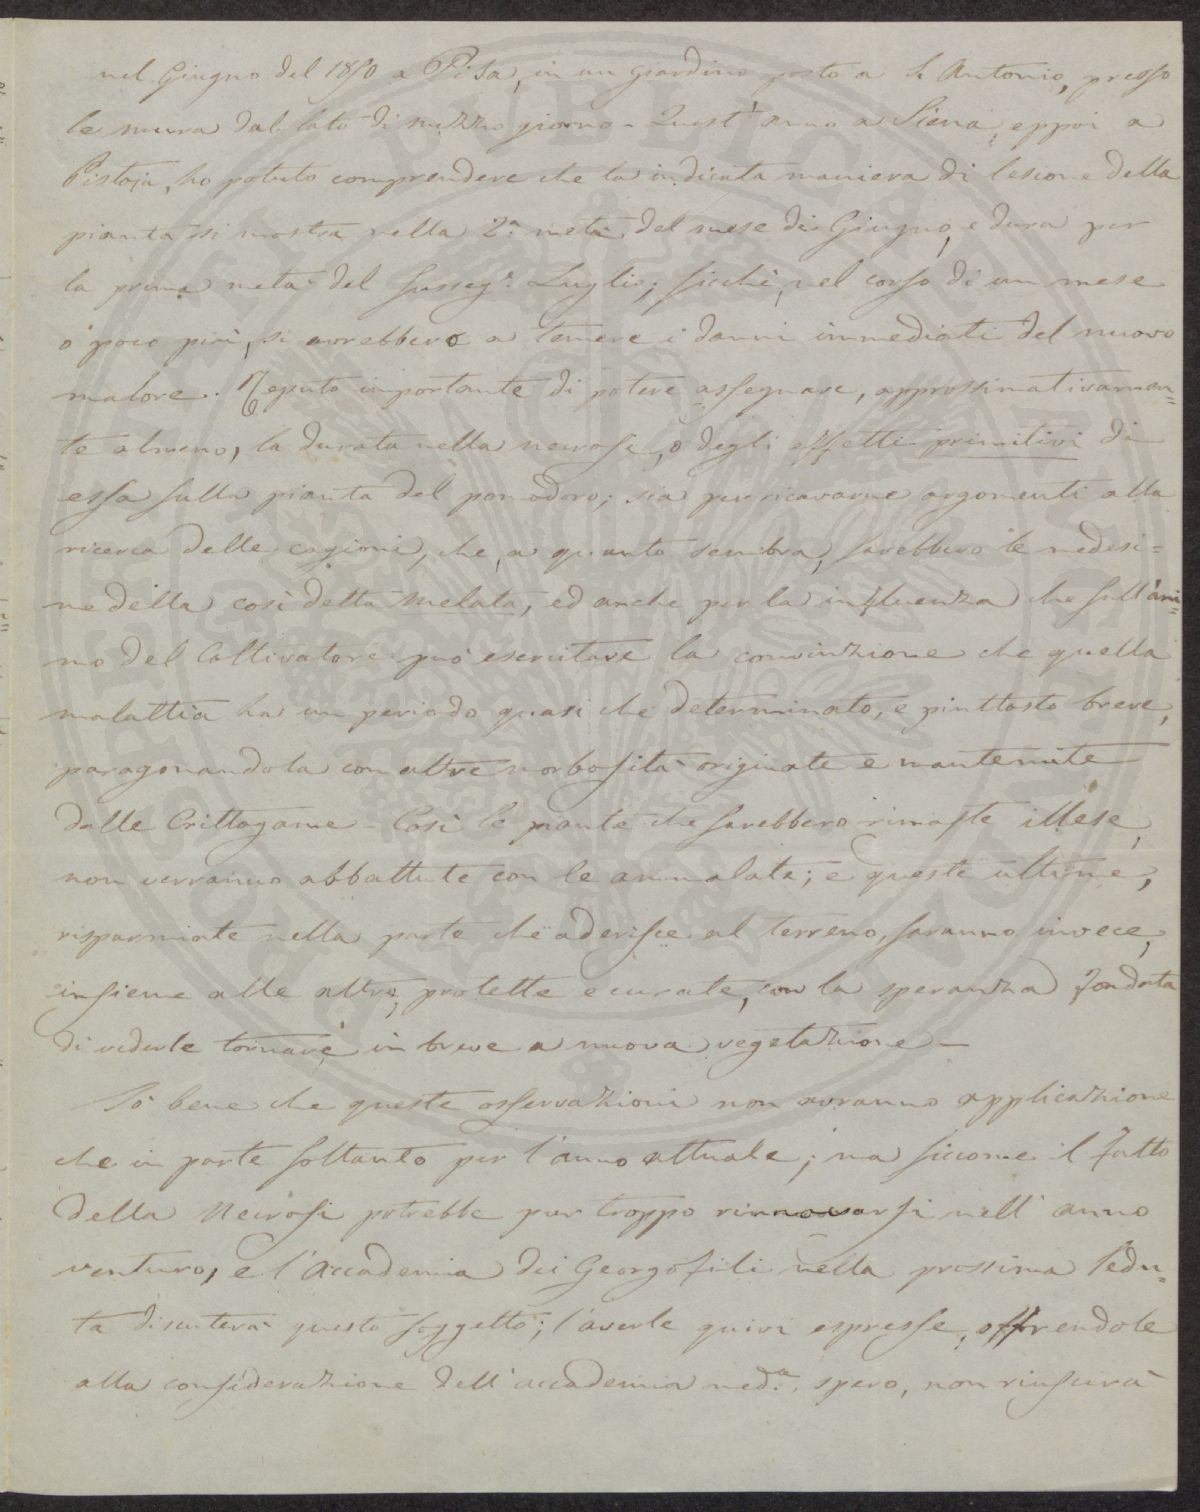 nel Giugno del 1850 a Pisa, in un giardino posto a S. Antonio, presso
le mura dal lato di mezzo giorno – Quest'anno a Siena, eppoi a
Pistoja, ho potuto comprendere che la indicata maniera di lesione della
pianta si mostra nella 2.a metà del mese di Giugno, e dura per
la prima metà del susseg.e Luglio; sicchè, nel corso di un mese
o poco più, si avrebbero a temere i danni immediati del nuovo
malore. Reputo importante di potere assegnare, approssimativamen=
te almeno, la durata nella necrosi, o degli effetti primitivi di
essa sulla pianta del pomodoro; sia per ricavarne argomenti alla
ricerca delle cagioni, che, a quanto sembra, sarebbero le medesi=
me della così detta melata, ed anche per la influenza che sull'ani=
mo del Coltivatore può esercitare la convinzione che quella
malattia ha un periodo quasi che determinato, e piuttosto breve,
paragonandola con altre morbosità originate e mantenute
dalle Crittogame – Così le piante che sarebbero rimaste illese,
non verranno abbattute con le ammalate; e queste ultime,
risparmiate nella parte che aderisce al terreno, saranno invece,
insieme alle altre, protette e curate, con la speranza fondata
di vederle tornare in breve a nuova vegetazione –
Sò bene che queste osservazioni non avranno applicazione
che in parte soltanto per l'anno attuale; ma siccome il fatto
della Necrosi potrebbe pur troppo rinnovarsi nell'anno
venturo, e l'Accademia dei Georgofili nella prossima Sedu=
ta discuterà questo soggetto; l'averle quivi espresse, offrendole
alla considerazione dell'accademia med.a, spero, non riuscirà
PUBLICA